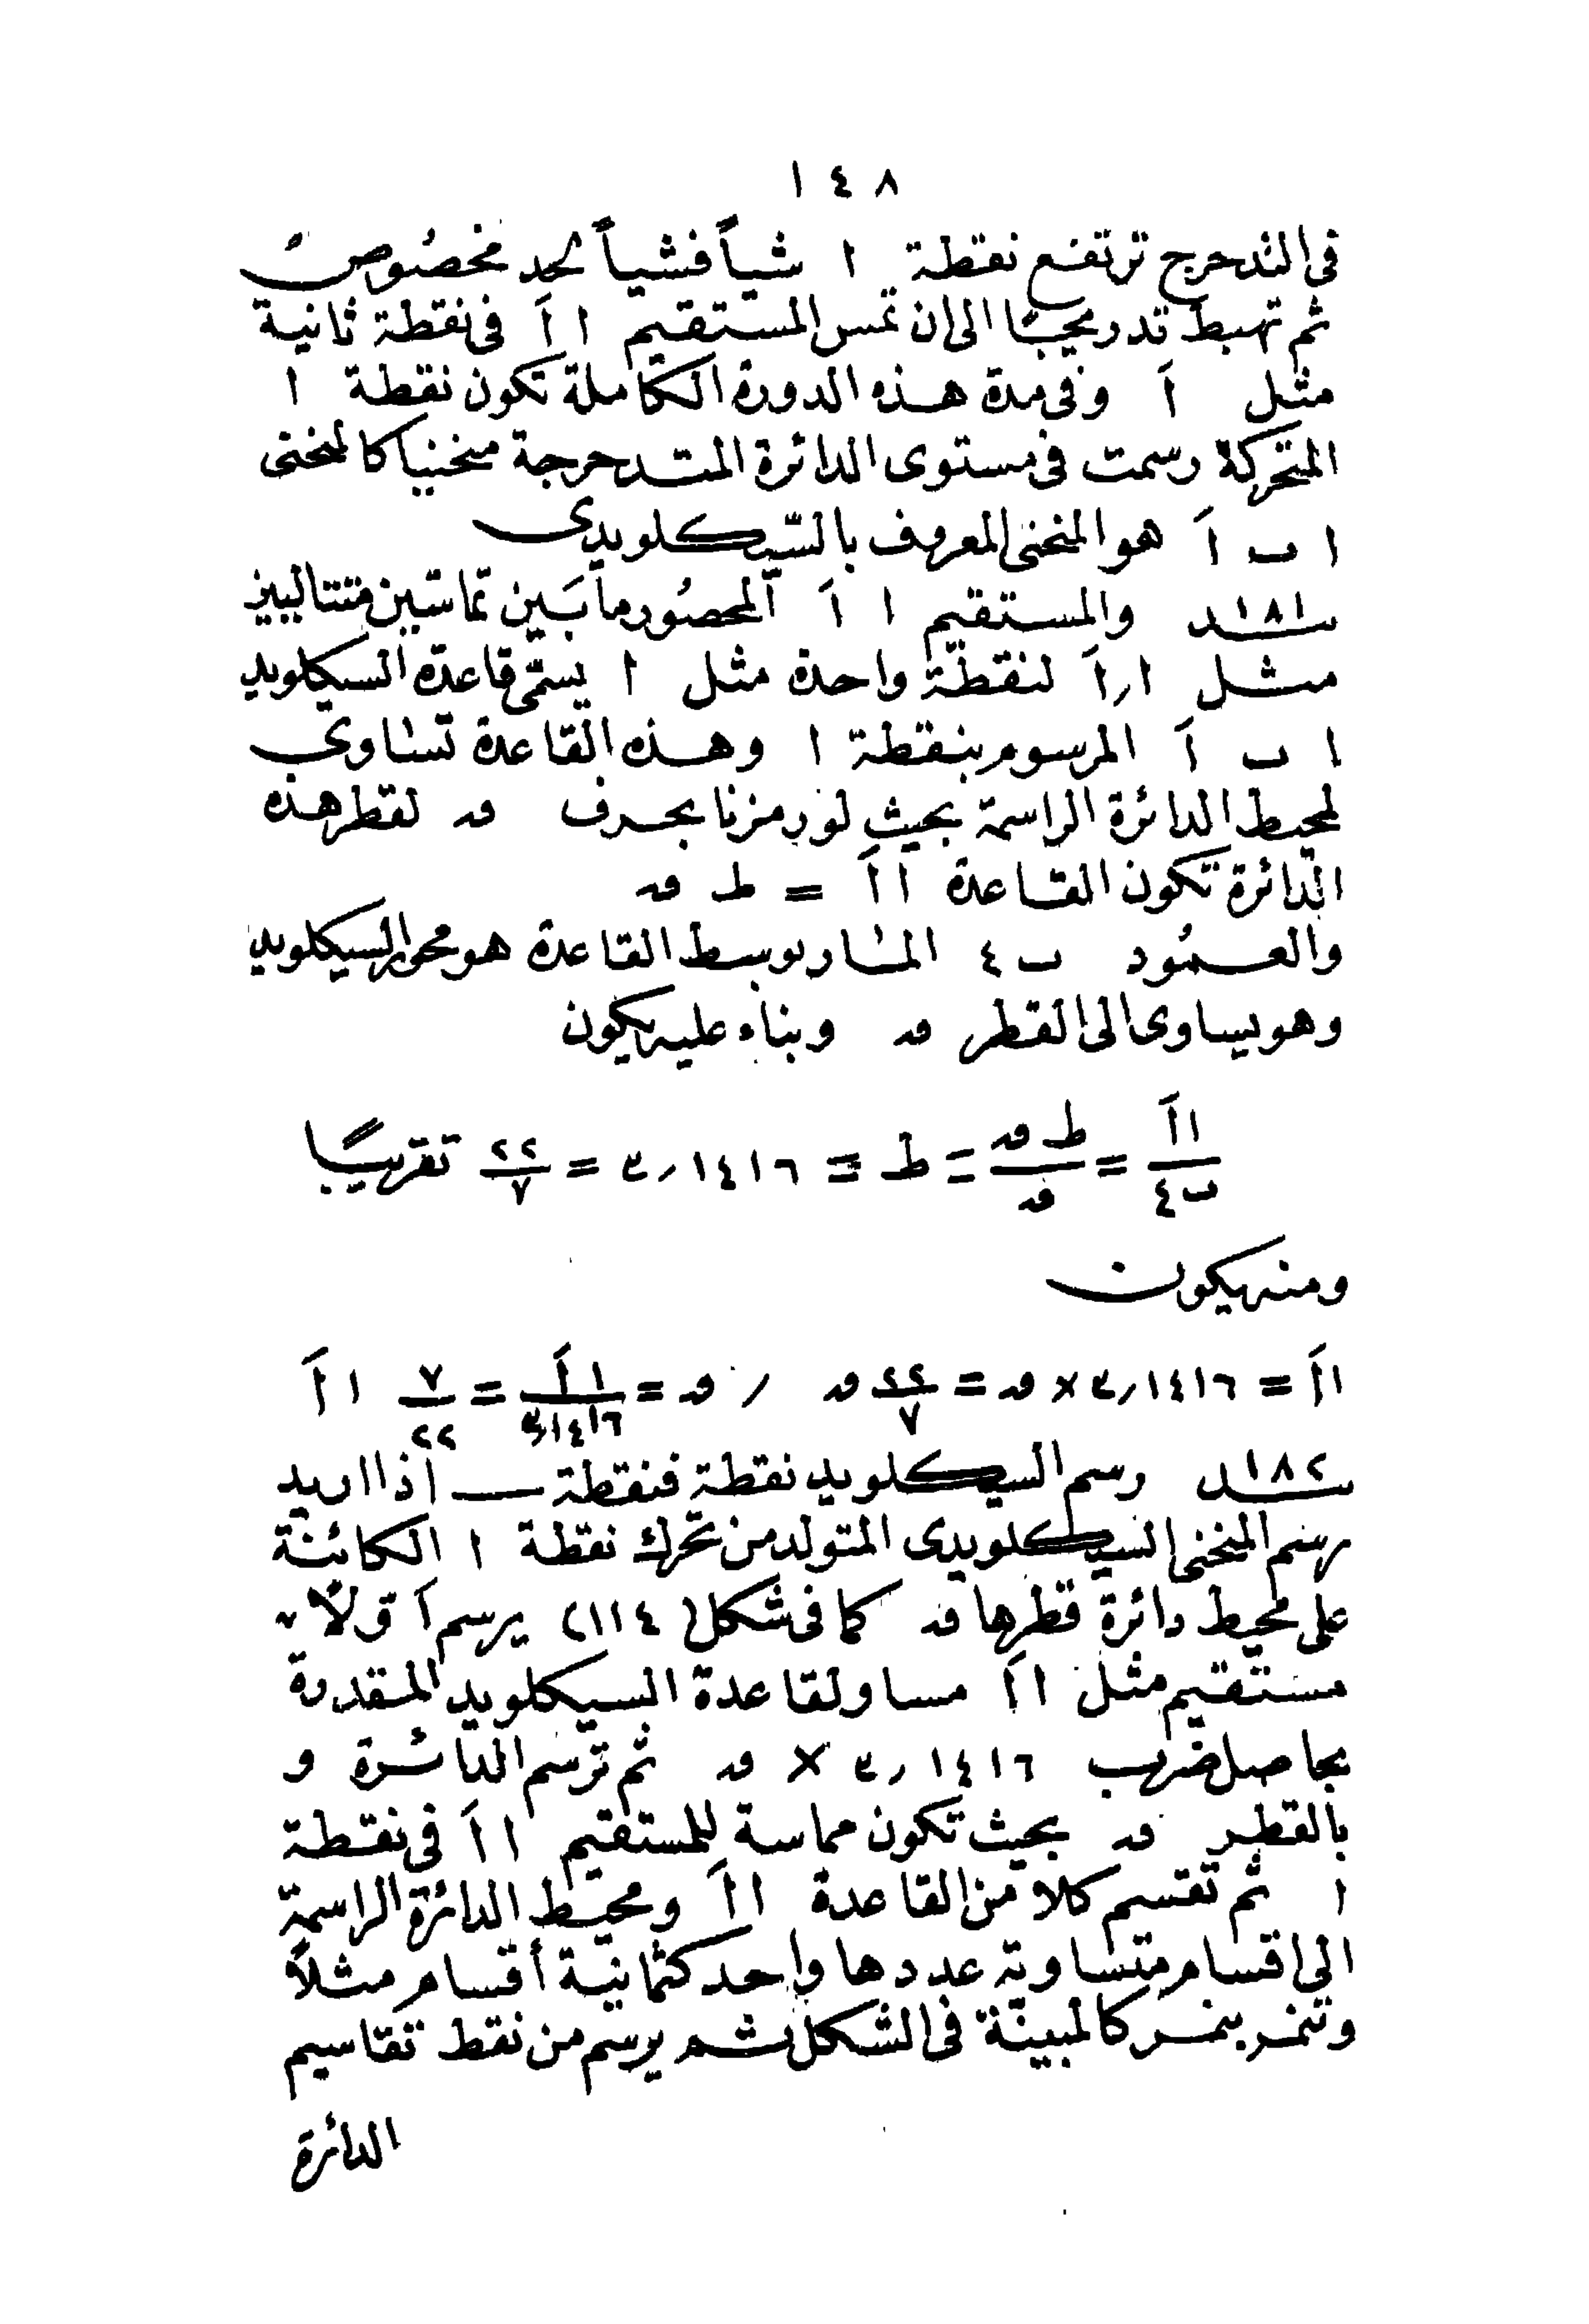 ١٤٨
فى التدحرج ترتفع نقطة ا شيأ فشيأ لحد مخصوص
ثم تهبط تدريجيا الى ان تمس المستقيم ا اَ فى نقطة ثانية
مثل اَ وفى مدة هذه الدورة الكاملة تكون نقطة ا
المتحركة رسمت فى مستوى الدائرة المتدحرجة منحنيا كالمنحنى
ا ب اَ هو المنحنى المعروف بالسّيكلويدى
١٨١ـد والمستقيم ا اَ المحصور ما بين تماسّين متتاليين
مثل ا ر اَ لنقطة واحدة مثل ا يسمّى قاعدة السيكلويد
ا ب اَ المرسوم بنقطة ا وهذه القاعدة تساوى
لمحيط الدائرة الراسمة بحيث لو رمزنا بحرف قـ لقطر هذه
الدائرة تكون القاعدة ا اَ = ط قـ
والعمود ب ٤ المار بوسط القاعدة هو محور السيكلويد
وهو يساوى الى القطر قـ وبناء عليه يكون
ا اَ / ب ٤ = ط قـ / قـ = ط = ٣٫١٤١٦ = ٢٢/٧ تقريبًا
ومنه يكون
ا اَ = ٣٫١٤١٦ × قـ = ٢٢/٧ قـ ر قـ = ا اَ / ٣٫١٤١٦ = ٧/٢٢ ا اَ
١٨٢ـد رسم السيكلويد نقطة فنقطة ــ اذا اريد
رسم المنحنى السيكلويدى المتولد من تحرك نقطة ا الكائنة
على محيط دائرة قطرها قـ كما فى شكل (١١٤) يرسم اَولاً
مستقيم مثل ا اَ مساو لقاعدة السيكلويد المقدرة
بحاصل ضرب ٣٫١٤١٦ × قـ ثم ترسم الدائرة و
بالقطر قـ بحيث تكون مماسة للمستقيم ا اَ فى نقطة
ا ثم تقسم كلا من القاعدة ا اَ ومحيط الدائرة الراسمة
الى اقسام متساوية عددها واحد كثمانية أقسام مثلاً
وتنمر بنمر كالمبينة فى الشكل ثم يرسم من نقط تقاسيم
الدائرة